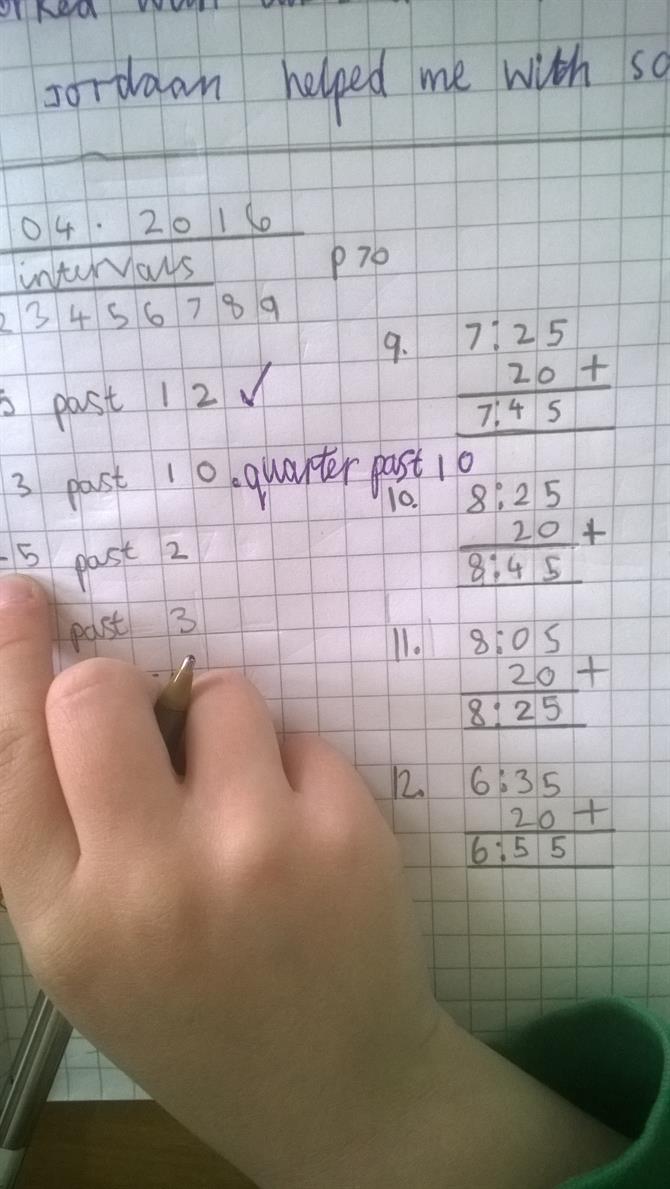 Jordaan helped me with so
04.2016
intervals
p70
2 3 4 5 6 7 8 9
5 past 12 ✓
3 past 10 . quarter past 10
5 past 2
past 3
9. 7:25
20 +
7:45
10. 8:25
20 +
8:45
11. 8:05
20 +
8:25
12. 6:35
20 +
6:55